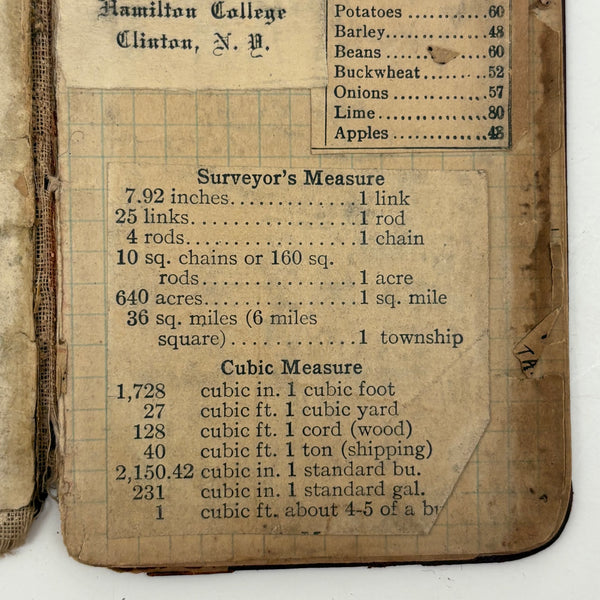 Hamilton College
Clinton, N. Y.
Potatoes ............. 60
Barley ............. 48
Beans ............. 60
Buckwheat ...... 52
Onions ............. 57
Lime ............. 80
Apples ............. 48
Surveyor's Measure
7.92 inches ............ 1 link
25 links ................ 1 rod
4 rods ................ 1 chain
10 sq. chains or 160 sq.
rods ............... 1 acre
640 acres .............. 1 sq. mile
36 sq. miles (6 miles
square) ............ 1 township
Cubic Measure
1,728 cubic in. 1 cubic foot
27 cubic ft. 1 cubic yard
128 cubic ft. 1 cord (wood)
40 cubic ft. 1 ton (shipping)
2,150.42 cubic in. 1 standard bu.
231 cubic in. 1 standard gal.
1 cubic ft. about 4-5 of a bu